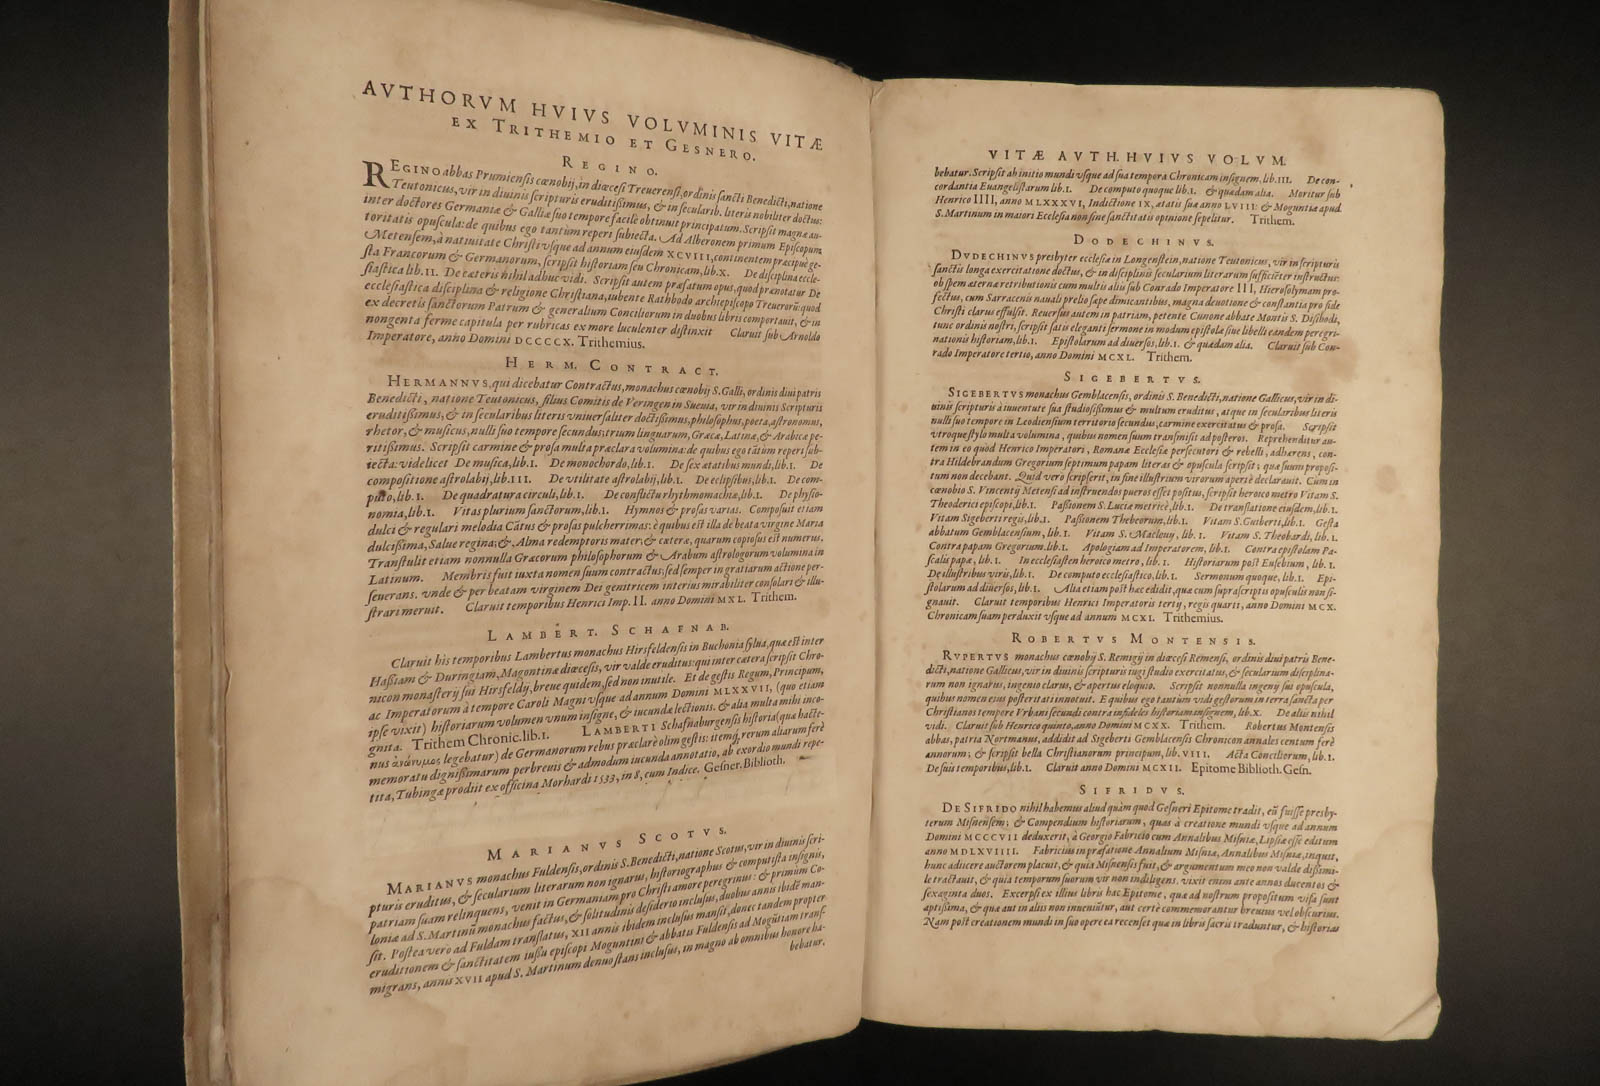 AVTHORVM HVIVS VOLVMINIS VITÆ
EX TRITHEMIO ET GESNERO.
REGINO.
REGINO abbas Prumiensis cœnobij, in diœcesi Treuerensi, ordinis sancti Benedicti, natione
Teutonicus, vir in diuinis scripturis eruditissimus, & in secularib. literis nobiliter doctus:
inter doctores Germaniæ & Galliæ suo tempore facilè obtinuit principatum. Scripsit magnæ au-
toritatis opuscula: de quibus ego tantùm reperi subiecta. Ad Alberonem primum Episcopum
Metensem, à natiuitate Christi vsque ad annum eiusdem XCVIII, continentem præcipuè ge-
sta Francorum & Germanorum, scripsit historiam seu Chronicam, lib. X. De disciplina eccle-
siastica lib. II. De cæteris nihil adhuc vidi. Scripsit autem præfatum opus, quod prænotatur De
ecclesiastica disciplina & religione Christiana, iubente Rathbodo archiepiscopo Treuerorũ: quod
ex decretis sanctorum Patrum & generalium Conciliorum in duobus libris comportauit, & in
nongenta ferme capitula per rubricas ex more luculenter distinxit Claruit sub Arnoldo
Imperatore, anno Domini DCCCCX. Trithemius.
HERM. CONTRACT.
HERMANNVS, qui dicebatur Contractus, monachus cœnobij S. Galli, ordinis diui patris
Benedicti, natione Teutonicus, filius Comitis de Veringen in Sueuia, vir in diuinis Scripturis
eruditissimus, & in secularibus literis vniuersaliter doctissimus, philosophus, poeta, astronomus,
rhetor, & musicus, nulli suo tempore secundus; trium linguarum, Græcæ, Latinæ, & Arabicæ pe-
ritissimus. Scripsit carmine & prosa multa præclara volumina: de quibus ego tãtùm reperi sub-
iecta: videlicet De musica, lib. I. De monochordo, lib. I. De sex ætatibus mundi, lib. I. De
compositione astrolabij, lib. III. De vtilitate astrolabij, lib. I. De eclipsibus, lib. I. De com-
puto, lib. I. De quadratura circuli, lib. I. De conflictu rhythmomachiæ, lib. I. De physio-
nomia, lib. I. Vitas plurium sanctorum, lib. I. Hymnos & prosas varias. Composuit etiam
dulci & regulari melodia Cãtus & prosas pulcherrimas: è quibus est illa de beata virgine Maria
dulcissima, Salue regina; &, Alma redemptoris mater; & cæteræ, quarum copiosus est numerus.
Transtulit etiam nonnulla Græcorum philosophorum & Arabum astrologorum volumina in
Latinum. Membris fuit iuxta nomen suum contractus; sed semper in gratiarum actione per-
seuerans. vnde & per beatam virginem Dei genitricem interius mirabiliter consolari & illu-
strari meruit. Claruit temporibus Henrici Imp. II. anno Domini MXL. Trithem.
LAMBERT. SCHAFNAB.
Claruit his temporibus Lambertus monachus Hirsfeldensis in Buchonia sylua, quæ est inter
Hassiam & Duringiam, Magontinæ diœcesis, vir valde eruditus: qui inter cætera scripsit Chro-
nicon monasterij sui Hirsfeldij, breue quidem, sed non inutile. Et de gestis Regum, Principum,
ac Imperatorum à tempore Caroli Magni vsque ad annum Domini MLXXVII, (quo etiam
ipse vixit) historiarum volumen vnum insigne, & iucundæ lectionis. & alia multa mihi inco-
gnita. Trithem Chronic. lib. I. LAMBERTI Schafnaburgensis historia (quæ hacte-
nus ἀνώνυμος legebatur) de Germanorum rebus præclarè olim gestis: itemq; rerum aliarum ferè
memoratu dignissimarum perbreuis & admodum iucunda annotatio, ab exordio mundi repe-
tita, Tubingæ prodiit ex officina Morhardi 1533, in 8, cum Indice. Gesner. Biblioth.
MARIANVS SCOTVS.
MARIANVS monachus Fuldensis, ordinis S. Benedicti, natione Scotus, vir in diuinis scri-
pturis eruditus, & secularium literarum non ignarus, historiographus & computista insignis,
patriam suam relinquens, venit in Germaniam pro Christi amore peregrinus: & primum Co-
loniæ ad S. Martinũ monachus factus, & solitudinis desiderio inclusus, duobus annis ibidẽ man-
sit. Postea vero ad Fuldam translatus, XII annis ibidem inclusus mansit, donec tandem propter
eruditionem & sanctitatem iussu episcopi Moguntini & abbatis Fuldensis ad Mogũtiam trans-
migrans, annis XVII apud S. Martinum denuo stans inclusus, in magno ab omnibus honore ha-
bebatur.
VITÆ AVTH. HVIVS VOLVM.
bebatur. Scripsit ab initio mundi vsque ad sua tempora Chronicam insignem, lib. III. De con-
cordantia Euangelistarum lib. I. De computo quoque lib. I. & quædam alia. Moritur sub
Henrico IIII, anno MLXXXVI, Indictione IX, ætatis suæ anno LVIII: & Moguntiæ apud
S. Martinum in maiori Ecclesia non sine sanctitatis opinione sepelitur. Trithem.
DODECHINVS.
DVDECHINVS presbyter ecclesiæ in Longenstein, natione Teutonicus, vir in scripturis
sanctis longa exercitatione doctus, & in disciplinis secularium literarum sufficiẽter instructus:
ob spem æternæ retributionis cum multis aliis sub Conrado Imperatore III, Hierosolymam pro-
fectus, cum Sarracenis nauali prelio sæpe dimicantibus, magna deuotione & constantia pro fide
Christi clarus effulsit. Reuersus autem in patriam, petente Cunone abbate Montis S. Disibodi,
tunc ordinis nostri, scripsit satis eleganti sermone in modum epistolæ siue libelli eandem peregri-
nationis historiam, lib. I. Epistolarum ad diuersos, lib. I. & quædam alia. Claruit sub Con-
rado Imperatore tertio, anno Domini MCXL. Trithem.
SIGEBERTVS.
SIGEBERTVS monachus Gemblacensis, ordinis S. Benedicti, natione Gallicus, vir in di-
uinis scripturis à iuuentute sua studiosissimus & multum eruditus, atque in secularibus literis
nulli suo tempore in Leodiensium territorio secundus, carmine exercitatus & prosa. Scripsit
vtroque stylo multa volumina, quibus nomen suum transmisit ad posteros. Reprehenditur au-
tem in eo quòd Henrico Imperatori, Romanæ Ecclesiæ persecutori & rebelli, adhærens, con-
tra Hildebrandum Gregorium septimum papam literas & opuscula scripsit; quæ suum proposi-
tum non decebant. Quid vero scripserit, in fine illustrium virorum apertè declarauit. Cum in
cœnobio S. Vincentij Metensi ad instruendos pueros esset positus, scripsit heroico metro Vitam S.
Theoderici episcopi, lib. I. Passionem S. Luciæ metricè, lib. I. De translatione eiusdem, lib. I.
Vitam Sigeberti regis, lib. I. Passionem Thebeorum, lib. I. Vitam S. Guiberti, lib. I. Gesta
abbatum Gemblacensium, lib. I. Vitam S. Macleuy, lib. I. Vitam S. Theobardi, lib. I.
Contra papam Gregorium. lib. I. Apologiam ad Imperatorem, lib. I. Contra epistolam Pa-
scalis papæ, lib. I. In ecclesiasten heroico metro, lib. I. Historiarum post Eusebium, lib. I.
De illustribus viris, lib. I. De computo ecclesiastico, lib. I. Sermonum quoque, lib. I. Epi-
stolarum ad diuersos, lib. I. Alia etiam post hæc edidit, quæ cum suprascriptis opusculis non si-
gnauit. Claruit temporibus Henrici Imperatoris tertij, regis quarti, anno Domini MCX.
Chronicam suam perduxit vsque ad annum MCXI. Trithemius.
ROBERTVS MONTENSIS.
RVPERTVS monachus cœnobij S. Remigij in diœcesi Remensi, ordinis diui patris Bene-
dicti, natione Gallicus, vir in diuinis scripturis iugi studio exercitatus, & secularium disciplina-
rum non ignarus, ingenio clarus, & apertus eloquio. Scripsit nonnulla ingenij sui opuscula,
quibus nomen eius posteritati innotuit. E quibus ego tantùm vidi gestorum in terra sancta per
Christianos tempore Vrbani secundi contra infideles historiam insignem, lib. X. De aliis nihil
vidi. Claruit sub Henrico quinto, anno Domini MCXX. Trithem. Robertus Montensis
abbas, patria Nortmanus, addidit ad Sigeberti Gemblacensis Chronicon annales centum ferè
annorum; & scripsit bella Christianorum principum, lib. VIII. Acta Conciliorum, lib. I.
De suis temporibus, lib. I. Claruit anno Domini MCXII. Epitome Biblioth. Gesn.
SIFRIDVS.
DE SIFRIDO nihil habemus aliud quàm quod Gesneri Epitome tradit, eũ fuisse presby-
terum Misnensem; & Compendium historiarum, quas à creatione mundi vsque ad annum
Domini MCCCVII deduxerit, à Georgio Fabricio cum Annalibus Misniæ, Lipsiæ esse editum
anno MDLXVIIII. Fabricius in præfatione Annalium Misniæ, Annalibus Misniæ, inquit,
hunc adiicere auctorem placuit, & quia Misnensis fuit, & argumentum meo non valde dissimi-
le tractauit, & quia temporum suorum vir non indiligens. vixit enim ante annos ducentos &
sexaginta duos. Excerpsi ex illius libris hac Epitome, quæ ad nostrum propositum visa sunt
aptissima, & quæ aut in aliis non inueniũtur, aut certè commemorantur breuius vel obscurius.
Nam post creationem mundi in suo opere ea recenset quæ in libris sacris traduntur, & historias